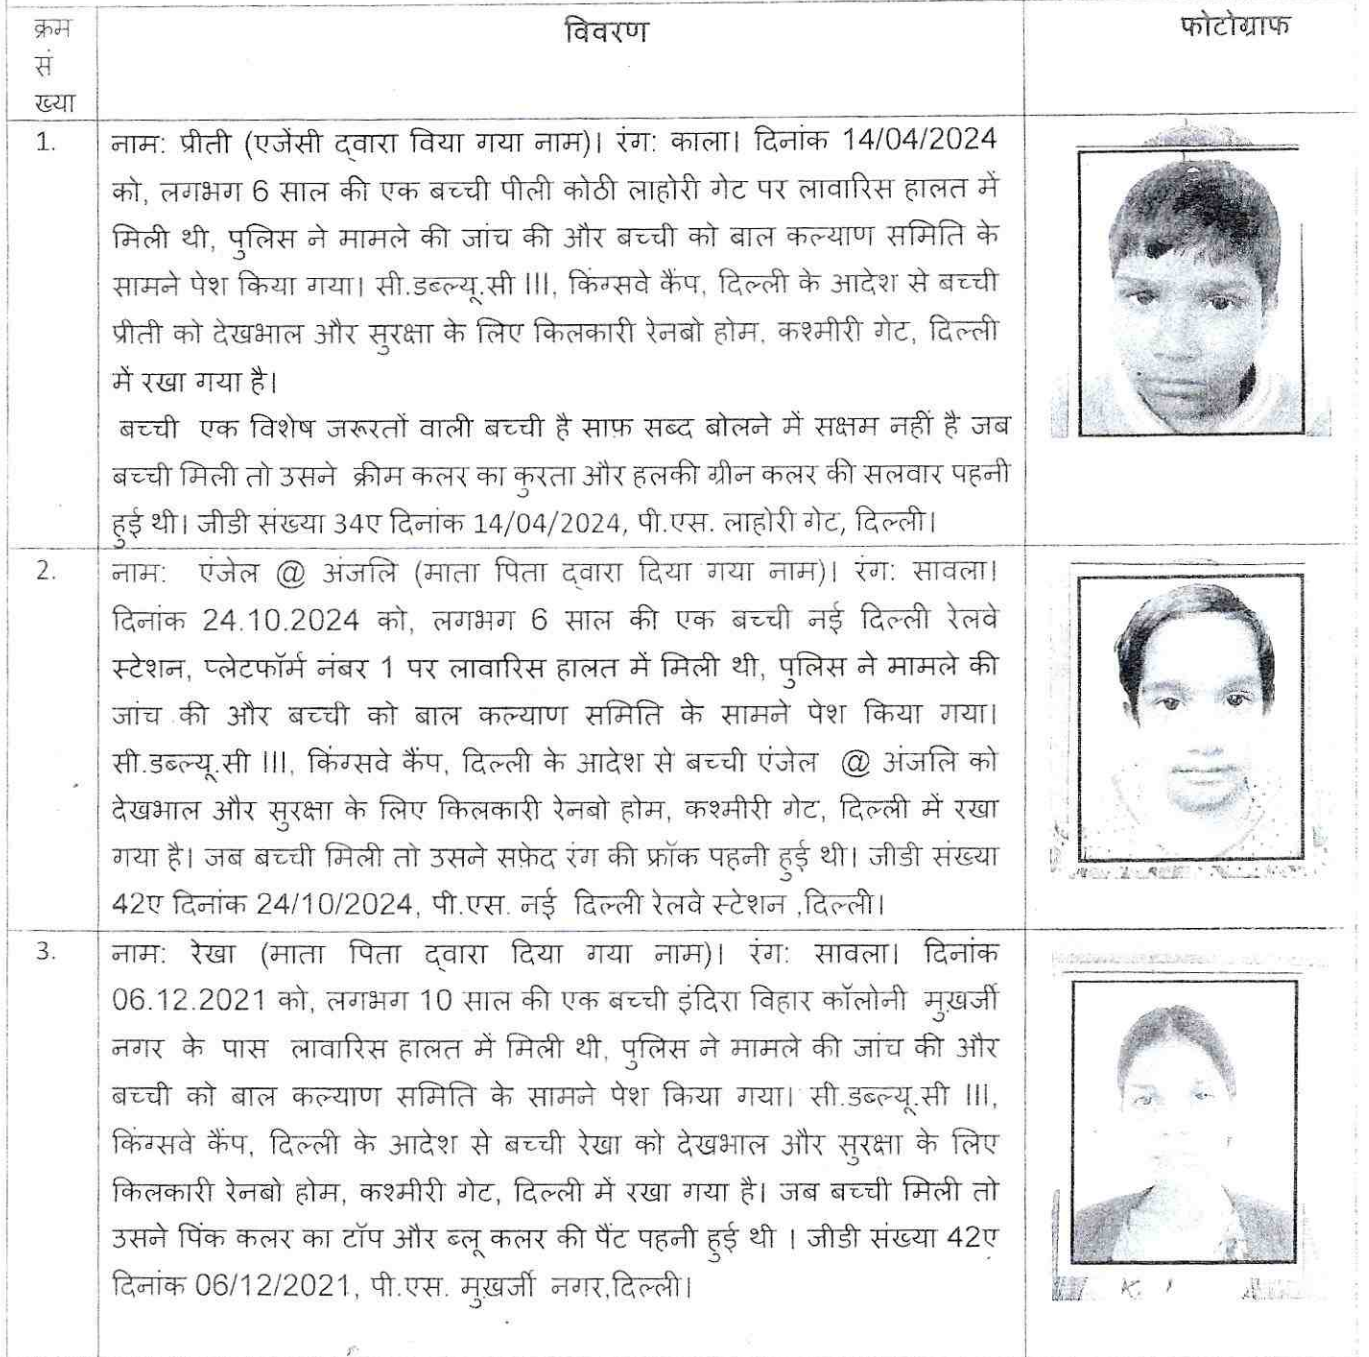 क्रम
सं
ख्या
विवरण
फोटोग्राफ
1.
नाम: प्रीती (एजेंसी द्वारा विया गया नाम)। रंग: काला। दिनांक 14/04/2024
को, लगभग 6 साल की एक बच्ची पीली कोठी लाहोरी गेट पर लावारिस हालत में
मिली थी, पुलिस ने मामले की जांच की और बच्ची को बाल कल्याण समिति के
सामने पेश किया गया। सी.डब्ल्यू.सी III, किंग्सवे कैंप, दिल्ली के आदेश से बच्ची
प्रीती को देखभाल और सुरक्षा के लिए किलकारी रेनबो होम, कश्मीरी गेट, दिल्ली
में रखा गया है।
बच्ची एक विशेष जरूरतों वाली बच्ची है साफ़ सब्द बोलने में सक्षम नहीं है जब
बच्ची मिली तो उसने क्रीम कलर का कुरता और हलकी ग्रीन कलर की सलवार पहनी
हुई थी। जीडी संख्या 34ए दिनांक 14/04/2024, पी.एस. लाहोरी गेट, दिल्ली।
2.
नाम: एंजेल @ अंजलि (माता पिता द्वारा दिया गया नाम)। रंग: सावला।
दिनांक 24.10.2024 को, लगभग 6 साल की एक बच्ची नई दिल्ली रेलवे
स्टेशन, प्लेटफॉर्म नंबर 1 पर लावारिस हालत में मिली थी, पुलिस ने मामले की
जांच की और बच्ची को बाल कल्याण समिति के सामने पेश किया गया।
सी.डब्ल्यू.सी III, किंग्सवे कैंप, दिल्ली के आदेश से बच्ची एंजेल @ अंजलि को
देखभाल और सुरक्षा के लिए किलकारी रेनबो होम, कश्मीरी गेट, दिल्ली में रखा
गया है। जब बच्ची मिली तो उसने सफ़ेद रंग की फ्रॉक पहनी हुई थी। जीडी संख्या
42ए दिनांक 24/10/2024, पी.एस. नई दिल्ली रेलवे स्टेशन ,दिल्ली।
3.
नाम: रेखा (माता पिता द्वारा दिया गया नाम)। रंग: सावला। दिनांक
06.12.2021 को, लगभग 10 साल की एक बच्ची इंदिरा विहार कॉलोनी मुख़र्जी
नगर के पास लावारिस हालत में मिली थी, पुलिस ने मामले की जांच की और
बच्ची को बाल कल्याण समिति के सामने पेश किया गया। सी.डब्ल्यू.सी III,
किंग्सवे कैंप, दिल्ली के आदेश से बच्ची रेखा को देखभाल और सुरक्षा के लिए
किलकारी रेनबो होम, कश्मीरी गेट, दिल्ली में रखा गया है। जब बच्ची मिली तो
उसने पिंक कलर का टॉप और ब्लू कलर की पैंट पहनी हुई थी । जीडी संख्या 42ए
दिनांक 06/12/2021, पी.एस. मुख़र्जी नगर,दिल्ली।